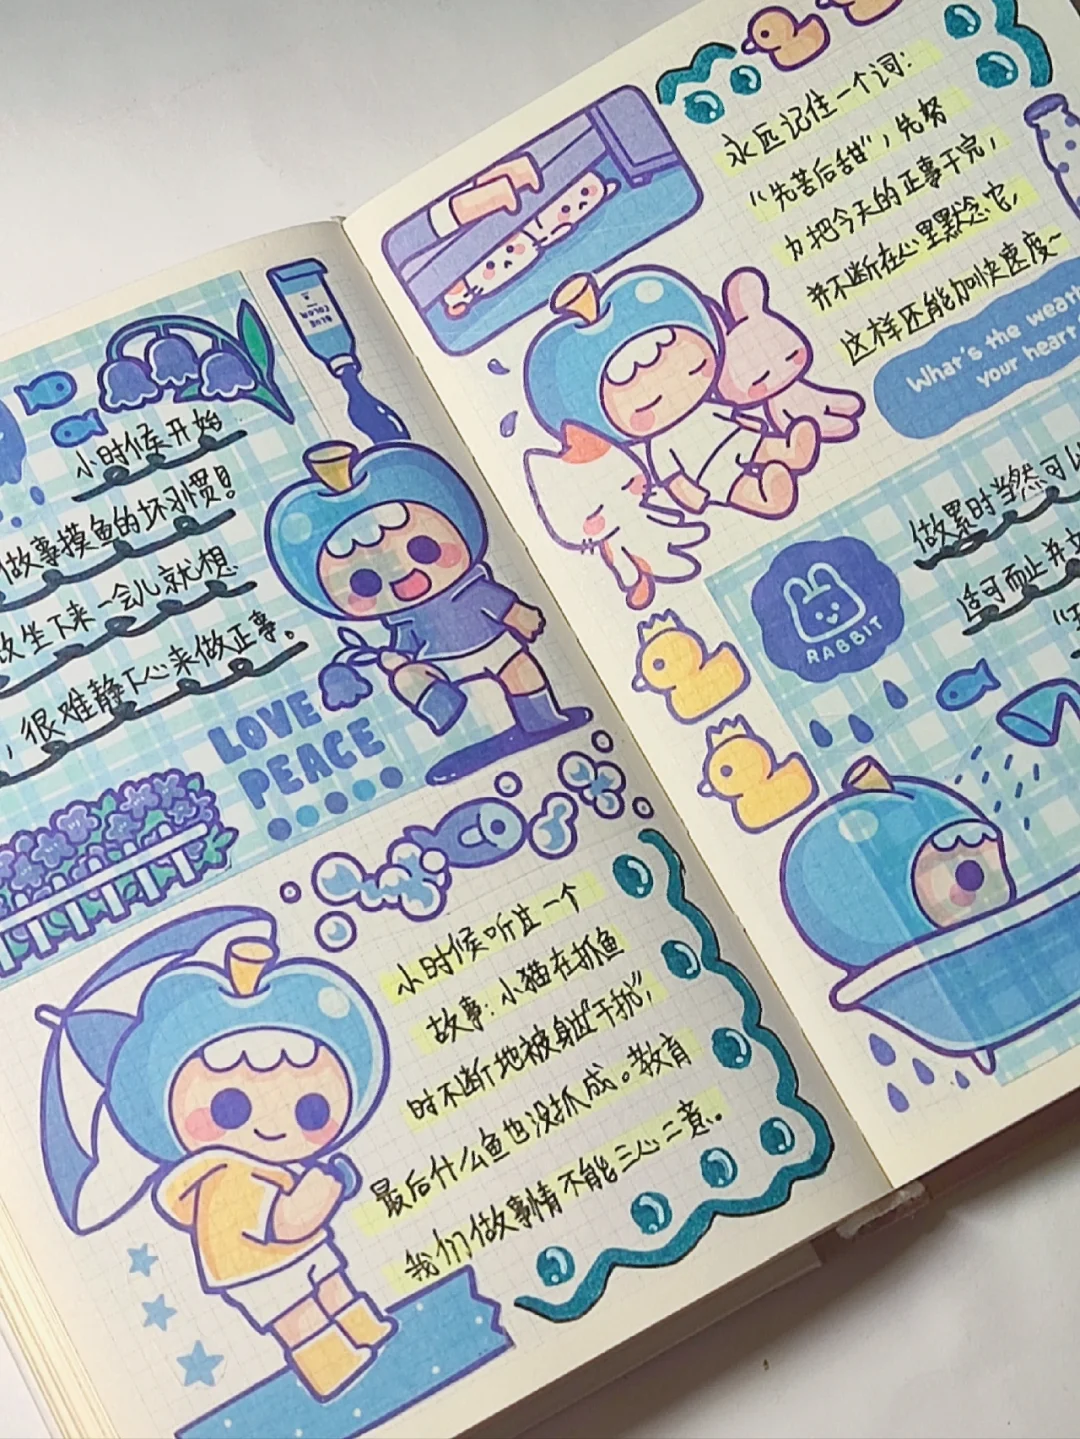 小时候开始
做事摸鱼的坏习惯!
坐下来一会儿就想
,很难静下心来做正事。
BLUE
COLOR
LOVE
PEACE
小时候听过一个
故事:小猫在抓鱼
时不断地被身边"干扰",
最后什么鱼也没抓成。教育
我们做事情不能三心二意。
永远记住一个词:
"先苦后甜",先努
力把今天的正事干完,
并不断在心里默念它,
这样还能加快速度~
What's the weath
your heart
做累时当然可以
适可而止并
RABBIT